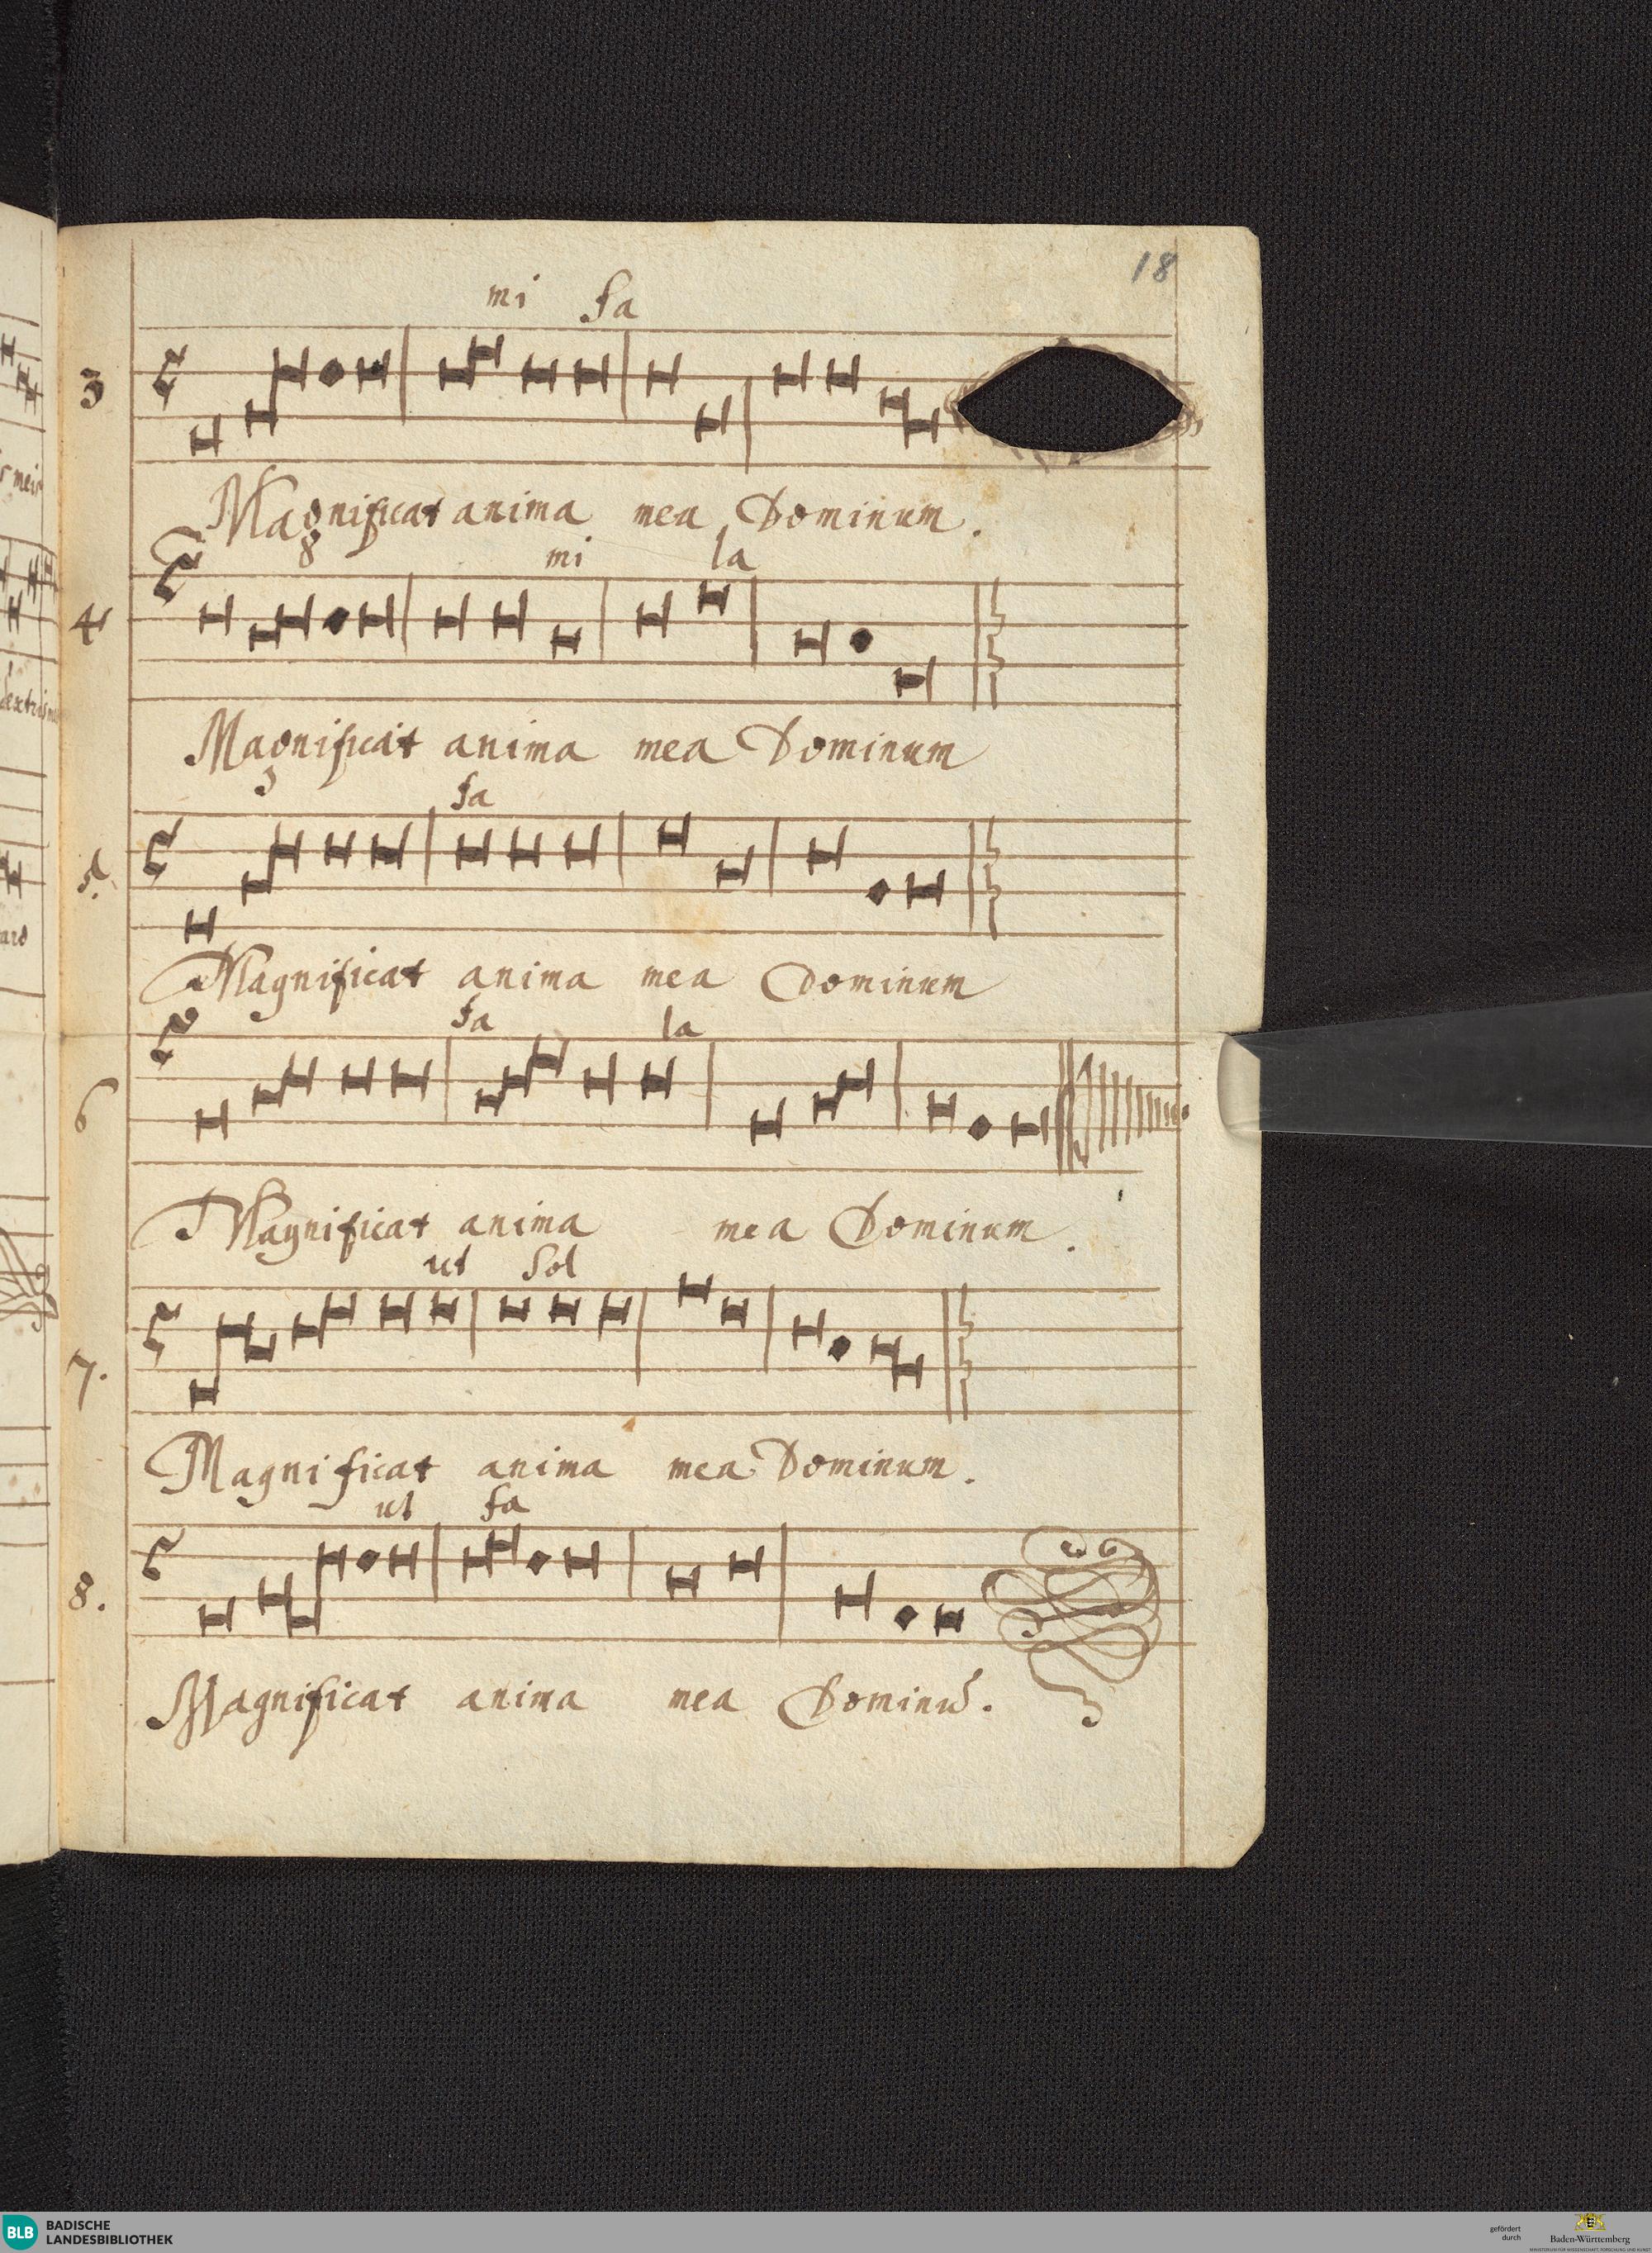 18
mi fa
3
Magnificat anima mea Dominum.
mi la
4
Magnificat anima mea Dominum
fa
5.
Magnificat anima mea Dominum
fa la
6
Magnificat anima mea Dominum.
ut sol
7.
Magnificat anima mea Dominum.
ut fa
8.
Magnificat anima mea Dominū.
BLB BADISCHE
LANDESBIBLIOTHEK
gefördert
durch
Baden-Württemberg